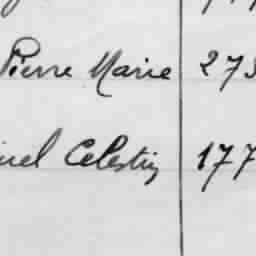 Pierre Marie 273
Celestin 177